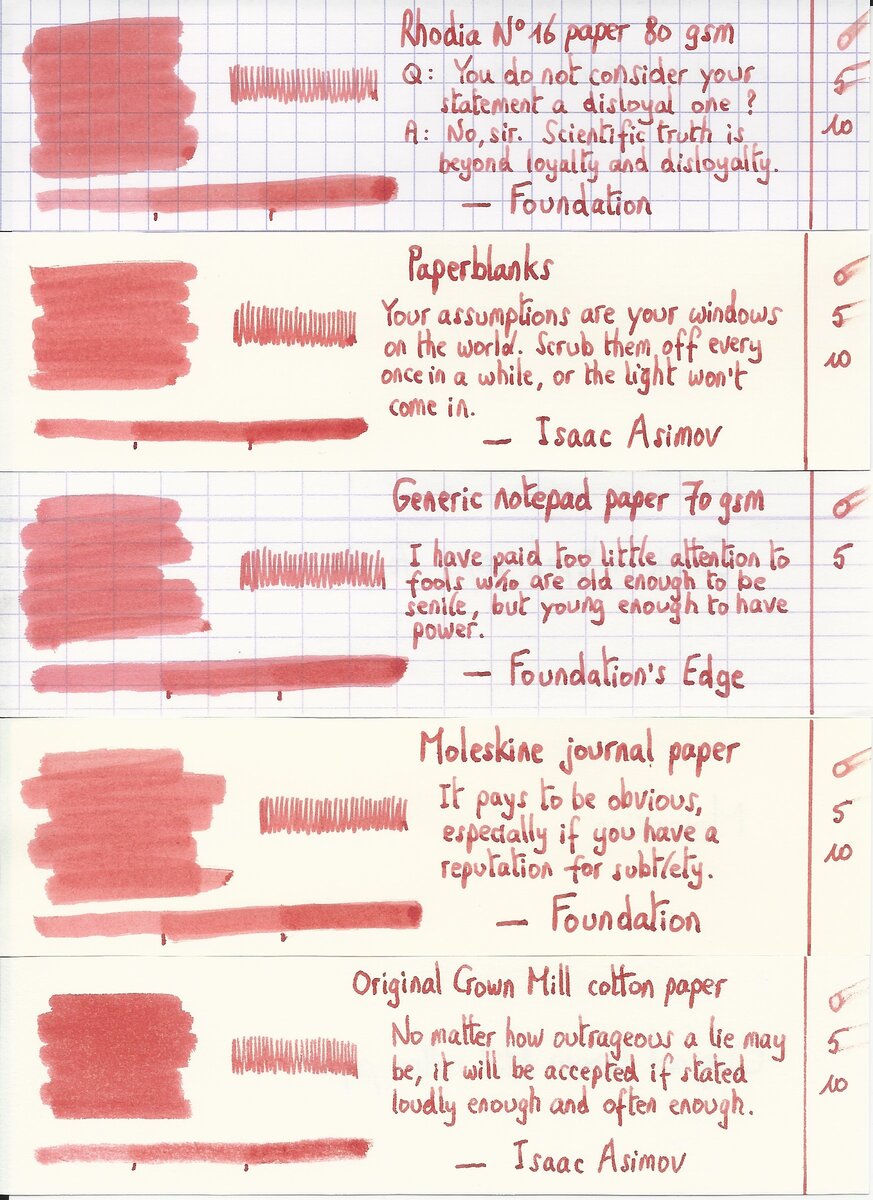 Rhodia N° 16 paper 80 gsm
Q: You do not consider your
statement a disloyal one ?
A: No, sir. Scientific truth is
beyond loyalty and disloyalty.
— Foundation
0
5
10
Paperblanks
Your assumptions are your windows
on the world. Scrub them off every
once in a while, or the light won't
come in.
— Isaac Asimov
0
5
10
Generic notepad paper 70 gsm
I have paid too little attention to
fools who are old enough to be
senile, but young enough to have
power.
— Foundation's Edge
0
5
Moleskine journal paper
It pays to be obvious,
especially if you have a
reputation for subtlety.
— Foundation
0
5
10
Original Crown Mill cotton paper
No matter how outrageous a lie may
be, it will be accepted if stated
loudly enough and often enough.
— Isaac Asimov
0
5
10